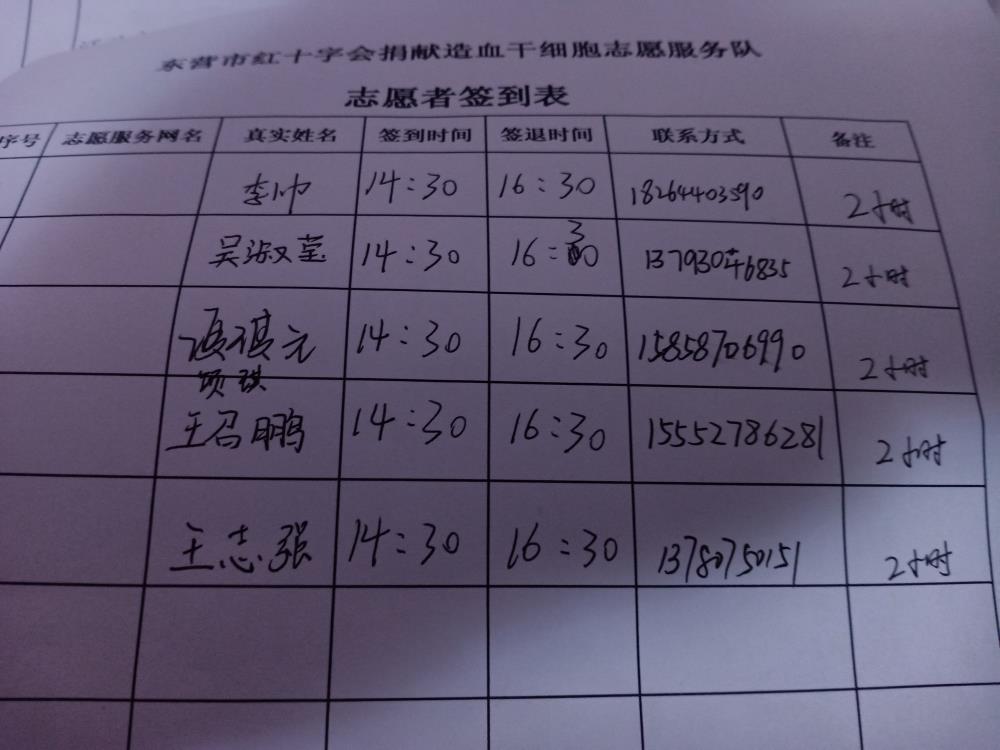 东营市红十字会捐献造血干细胞志愿服务队
志愿者签到表
序号 志愿服务网名 真实姓名 签到时间 签退时间 联系方式 备注
李帅 14:30 16:30 18264403590 2小时
吴淑莹 14:30 16:30 2小时
琪元 14:30 16:30 15858706990 2小时
琪
王召鹏 14:30 16:30 15552786281 2小时
王志强 14:30 16:30 13780750151 2小时